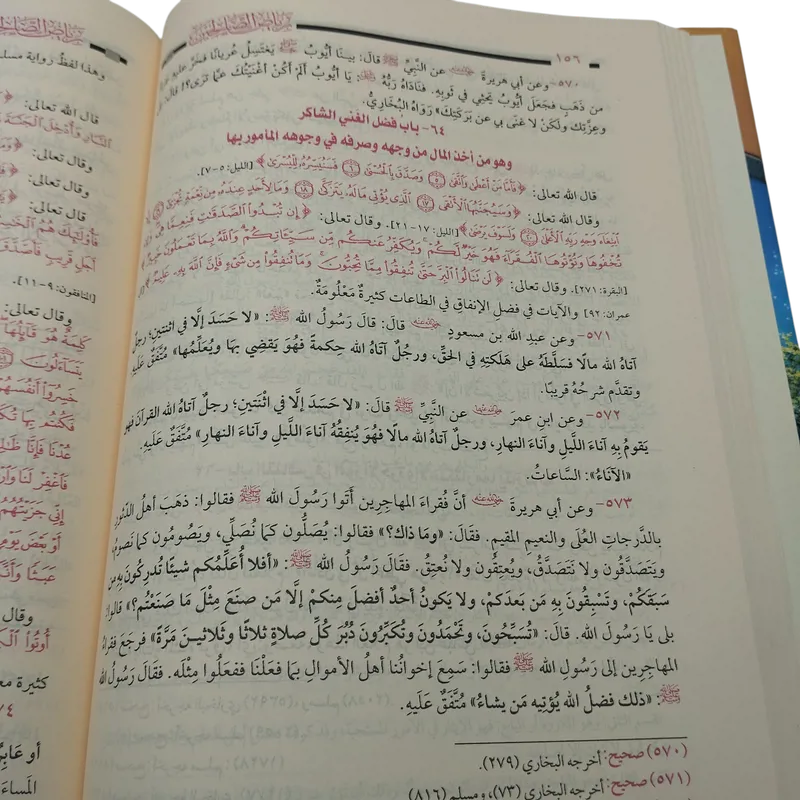 رياض الصالحين
١٥٦
٥٧٠- وعن أبي هريرةَ ﵁ عن النَّبيِّ ﷺ قالَ: بينا أيُّوبُ ﷺ يَغتَسِلُ عُريانًا فخَرَّ عليهِ جرادٌ
من ذَهَبٍ فجَعَلَ أيُّوبُ يَحْثِي في ثَوبِهِ. فنَادَاهُ ربُّهُ ﷿: يا أيُّوبُ ألَمْ أكُنْ أغنَيتُكَ عمَّا تَرَى؟! قالَ: بلَى
وعِزَّتِك ولَكنْ لا غنَى بي عن بَرَكَتِكَ» رَوَاهُ البُخَاريُّ.
٦٤- باب فضل الغني الشاكر
وهو من أخذ المال من وجهه وصرفه في وجوهه المأمور بها
قال الله تعالى: ﴿فَأَمَّا مَنْ أَعْطَى وَاتَّقَى ۝٥ وَصَدَّقَ بِالْحُسْنَى ۝٦ فَسَنُيَسِّرُهُ لِلْيُسْرَى﴾ [الليل: ٥-٧].
وقال الله تعالى: ﴿وَسَيُجَنَّبُهَا الْأَتْقَى ۝١٧ الَّذِي يُؤْتِي مَالَهُ يَتَزَكَّى ۝١٨ وَمَا لِأَحَدٍ عِنْدَهُ مِنْ نِعْمَةٍ تُجْزَى ۝١٩ إِلَّا
ابْتِغَاءَ وَجْهِ رَبِّهِ الْأَعْلَى ۝٢٠ وَلَسَوْفَ يَرْضَى﴾ [الليل: ١٧-٢١]. وقال تعالى: ﴿إِنْ تُبْدُوا الصَّدَقَاتِ فَنِعِمَّا هِيَ وَإِنْ
تُخْفُوهَا وَتُؤْتُوهَا الْفُقَرَاءَ فَهُوَ خَيْرٌ لَكُمْ وَيُكَفِّرُ عَنْكُمْ مِنْ سَيِّئَاتِكُمْ وَاللَّهُ بِمَا تَعْمَلُونَ خَبِيرٌ﴾
[البقرة: ٢٧١]. وقال تعالى: ﴿لَنْ تَنَالُوا الْبِرَّ حَتَّى تُنْفِقُوا مِمَّا تُحِبُّونَ وَمَا تُنْفِقُوا مِنْ شَيْءٍ فَإِنَّ اللَّهَ بِهِ عَلِيمٌ﴾ [آل
عمران: ٩٢] والآيات في فضلِ الإنفاقِ في الطاعات كثيرةٌ مَعْلُومَةٌ.
٥٧١- وعن عبدِ الله بن مسعودٍ ﵁ قالَ: قالَ رَسُولُ الله ﷺ: «لا حَسَدَ إلَّا في اثنتين؛ رجلٌ
آتاهُ الله مالًا فسَلَّطَهُ على هَلَكتِهِ في الحقِّ، ورجُلٌ آتاهُ الله حِكمةً فهُوَ يَقضِي بهَا ويُعَلِّمُها» مُتَّفَقٌ عَلَيهِ
وتقدَّم شرحُهُ قريبًا.
٥٧٢- وعن ابنِ عمرَ ﵄ عن النَّبيِّ ﷺ قالَ: «لا حَسَدَ إلَّا في اثْنَتينِ؛ رجلٌ آتاهُ الله القرآنَ فهو
يَقومُ بِهِ آناءَ اللَّيلِ وآناءَ النهارِ، ورجلٌ آتاهُ الله مالًا فهُوَ يُنفِقُهُ آناءَ اللَّيلِ وآناءَ النهارِ» مُتَّفَقٌ عَلَيهِ.
«الآناءُ»: السَّاعاتُ.
٥٧٣- وعن أبي هريرةَ ﵁ أنَّ فُقراءَ المهاجرين أتَوا رَسُولَ الله ﷺ فقالوا: ذهَبَ أهلُ الدُّثورِ
بالدَّرجاتِ العُلَى والنعيمِ المقيمِ. فقالَ: «ومَا ذاكَ؟» فقالوا: يُصَلُّون كمَا نُصَلِّي، ويَصُومُون كمَا نَصومُ،
ويَتَصدَّقُون ولا نَتَصدَّقُ، ويُعتِقُون ولا نُعتِقُ. فقالَ رَسُولُ الله ﷺ: «أفلا أُعَلِّمُكم شيئًا تُدرِكُونَ بِهِ مَن
سَبَقَكُمْ، وتَسْبِقُونَ بِهِ مَن بَعدَكُمْ، ولا يَكونُ أحدٌ أفضلَ مِنكمْ إلَّا مَن صنَعَ مِثْلَ مَا صَنَعْتُم؟» قالوا:
بلى يَا رَسُولَ الله. قالَ: «تُسَبِّحُونَ، وتَحْمَدُونَ وتُكَبِّرُونَ دُبُرَ كُلِّ صلاةٍ ثلاثًا وثلاثينَ مَرَّةً» فرجَعَ فقراءُ
المهاجرين إلى رَسُولِ الله ﷺ فقالوا: سَمِعَ إخوانُنا أهلُ الأموالِ بمَا فعَلْنَا ففعلُوا مِثلَه. فقالَ رَسُولُ الله
ﷺ: «ذلك فضلُ الله يُؤتِيهِ مَن يشاءُ» مُتَّفَقٌ عَلَيهِ.
(٥٧٠) صحيح: أخرجه البخاري (٢٧٩).
(٥٧١) صحيح: أخرجه البخاري (٧٣)، ومسلم (٨١٦)
رياض الصالحين
وهذا لفظُ رواية مسلم
قال الله تعالى:
وقال تعالى:
وقال تعالى:
قال الله تعالى:
[المنافقون: ٩-١١].
وقال تعالى:
وقال
كثيرة مع